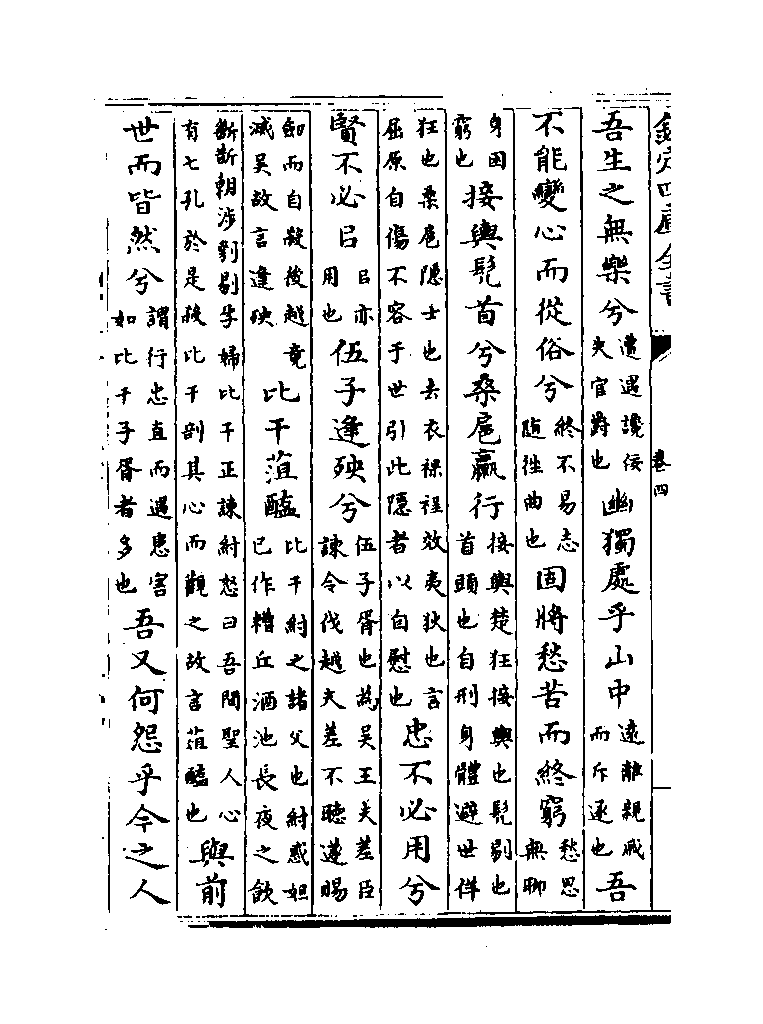 欽定四庫全書 卷四
吾生之無樂兮遭遇讒佞失官爵也幽獨處乎山中遠離親戚而斥逐也吾
不能變心而從俗兮終不易志隨枉曲也固將愁苦而終窮愁思無聊
身困窮也接輿髡首兮桑扈臝行接輿楚狂接輿也髡剔也首頭也自刑身體避世佯
狂也桑扈隱士也去衣裸裎效夷狄也言屈原自傷不容于世引此隱者以自慰也忠不必用兮
賢不必㠯㠯亦用也伍子逢殃兮伍子胥也為吳王夫差臣諫令伐越夫差不聽遂賜
劒而自殺後越竟滅吳故言逢殃比干菹醢比干紂之諸父也紂惑妲己作糟丘酒池長夜之飲
斷斮朝涉刳剔孕婦比干正諫紂怒曰吾聞聖人心有七孔於是殺比干剖其心而觀之故言菹醢也與前
世而皆然兮謂行忠直而遇患害如比干子胥者多也吾又何怨乎今之人